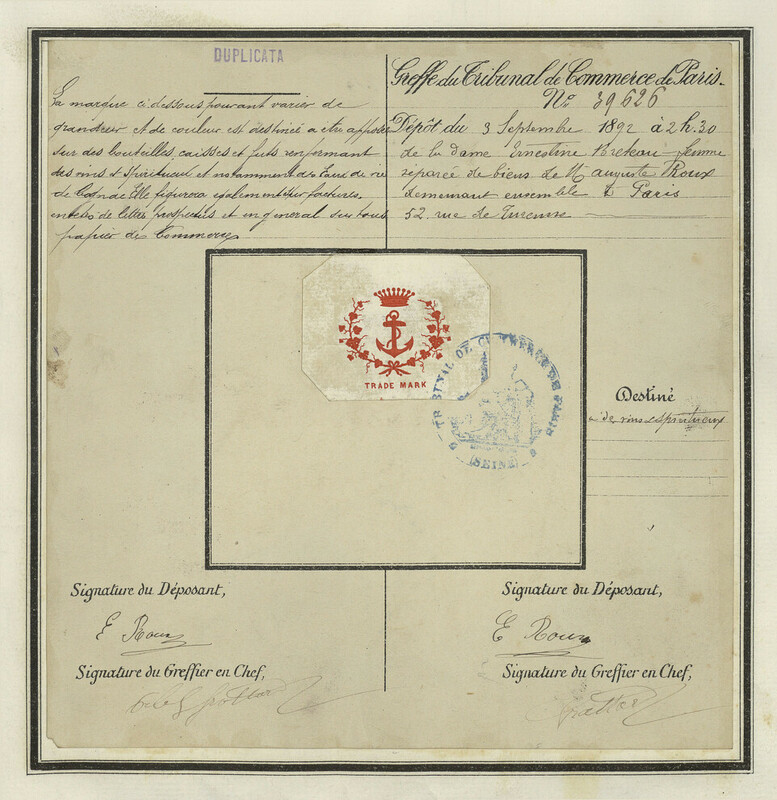 DUPLICATA
La marque ci dessous pouvant varier de
grandeur et de couleur est destinée a être apposée
sur des bouteilles, caisses et futs renfermant
des vins et spiritueux et notamment des Eaux de vie
de Cognac Elle figurera egalement sur factures,
entetes de lettres prospectus et en general sur tous
papier de Commerce
Greffe du Tribunal de Commerce de Paris.
No 39626
Dépôt du 3 Septembre 1892 à 2h.30
de la dame Ernestine Breteau femme
separée de biens de Mr Auguste Roux
demeurant ensemble à Paris
52 rue de Turenne
TRADE MARK
TRIBUNAL DE COMMERCE DE PARIS
(SEINE)
Destiné
a des vins et spiritueux
Signature du Déposant,
E Roux
Signature du Greffier en Chef,
Signature du Déposant,
E Roux
Signature du Greffier en Chef,